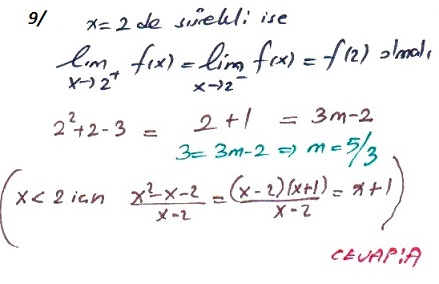 9/ x=2 de sürekli ise
lim x→2⁺ f(x) = lim x→2⁻ f(x) = f(2) olmalı
2²+2-3 = 2+1 = 3m-2
3=3m-2 ⇒ m=5/3
(x<2 için x²-x-2/x-2 = (x-2)(x+1)/x-2 = x+1)
CEVAP:A